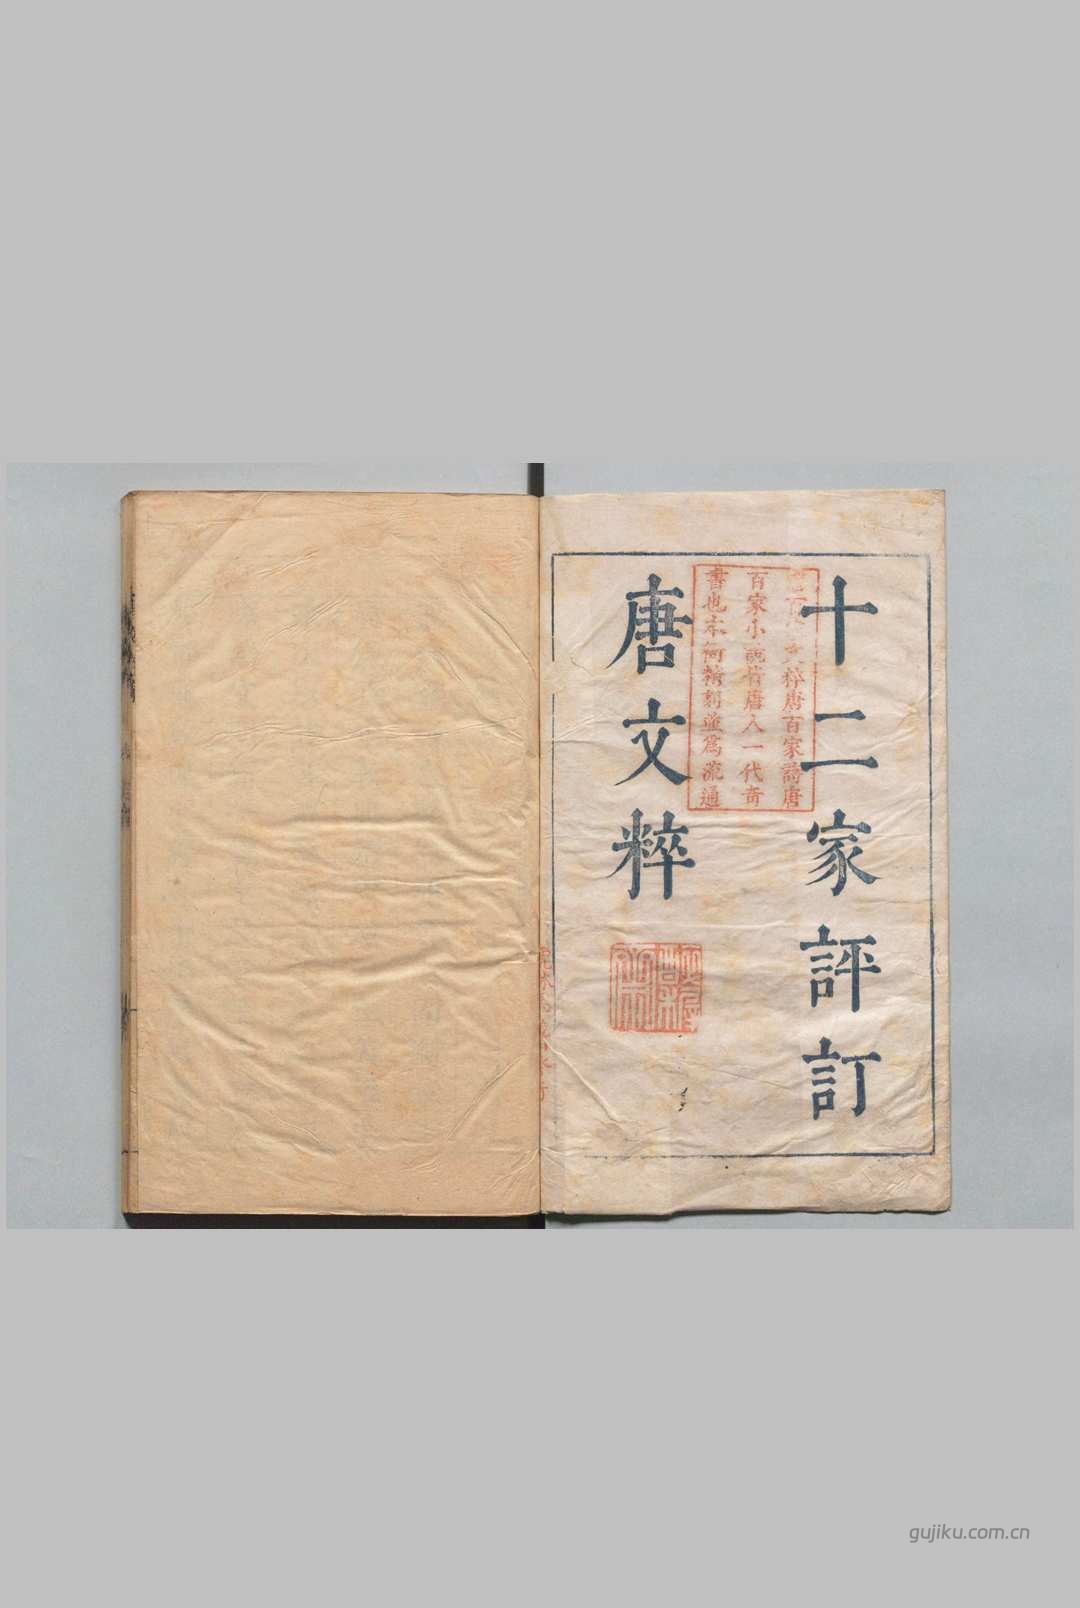 十二家評訂
唐文粹
粹唐百家詩唐
百家小說皆唐人一代奇
書也本衙精刻並爲流通
gujiku.com.cn